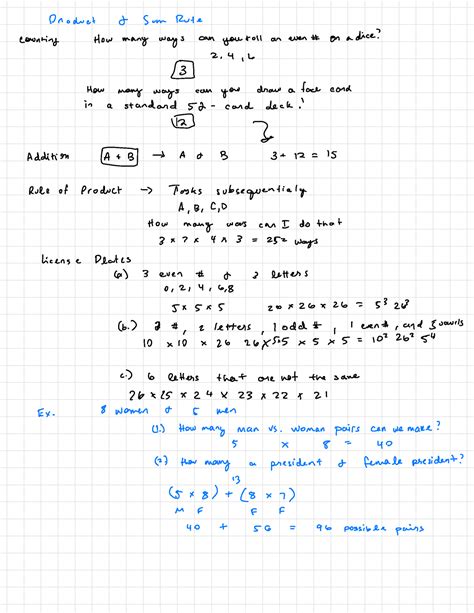 Product & Sum Rule
Counting How many ways can you roll an even # on a dice?
2, 4, 6
3
How many ways can you draw a face card
in a standard 52-card deck?
12
Addition A + B → A or B 3 + 12 = 15
Rule of Product → Tasks subsequentialy
A, B, C, D
How many ways can I do that
3 × 7 × 4 × 3 = 252 ways
License Plates
(a) 3 even # & 3 letters
0, 2, 4, 6, 8
5 × 5 × 5 26 × 26 × 26 = 5³ 26³
(b.) 2 #, 2 letters, 1 odd #, 1 even #, and 2 vowels
10 × 10 × 26 26 × 5 × 5 × 5 × 5 = 10² 26² 5⁴
c.) 6 letters that are not the same
26 × 25 × 24 × 23 × 22 × 21
Ex. 8 women & 5 men
(1.) How many man vs. woman pairs can we make?
5 × 8 = 40
(2) How many a president & female president?
13
(5 × 8) + (8 × 7)
M F F F
40 + 56 = 96 possible pairs